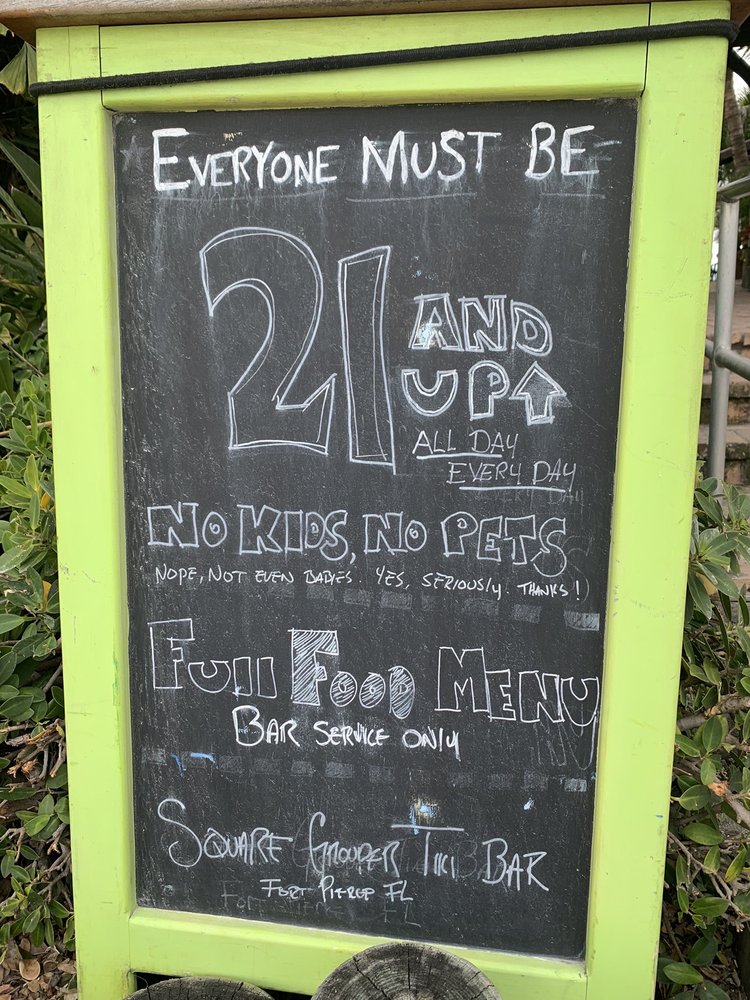 EVERYONE MUST BE
21 AND
UP
ALL DAY
EVERY DAY
NO KIDS, NO PETS
NOPE, NOT EVEN BABIES. YES, SERIOUSLY. THANKS!
FULL FOOD MENU
BAR SERVICE ONLY
SQUARE GROUPER TIKI BAR
FORT PIERCE FL